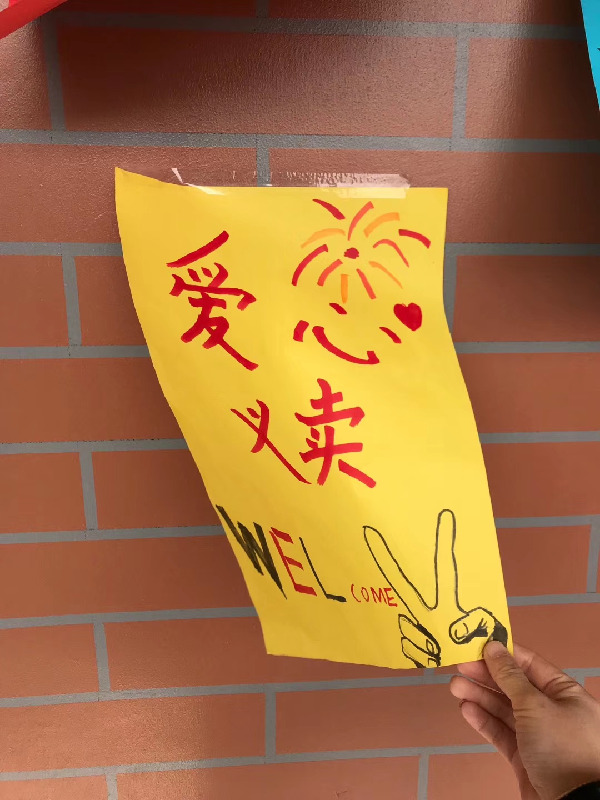 爱心
义卖
WELCOME